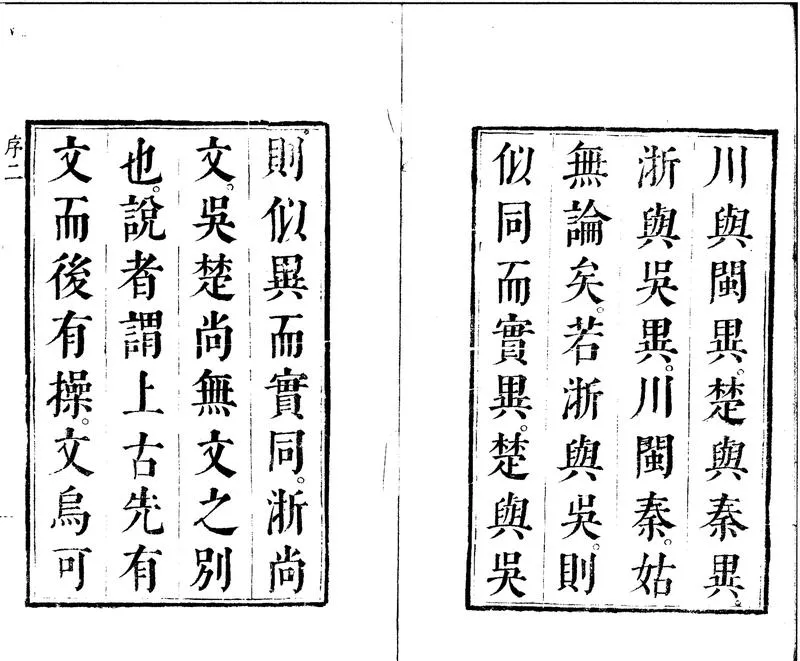 川與閩異。楚與秦異。
浙與吳異。川閩秦。姑
無論矣。若浙與吳。則
似同而實異。楚與吳
則似異而實同。浙尚
文。吳楚尚無文之別
也。說者謂上古先有
文而後有操。文烏可
序二